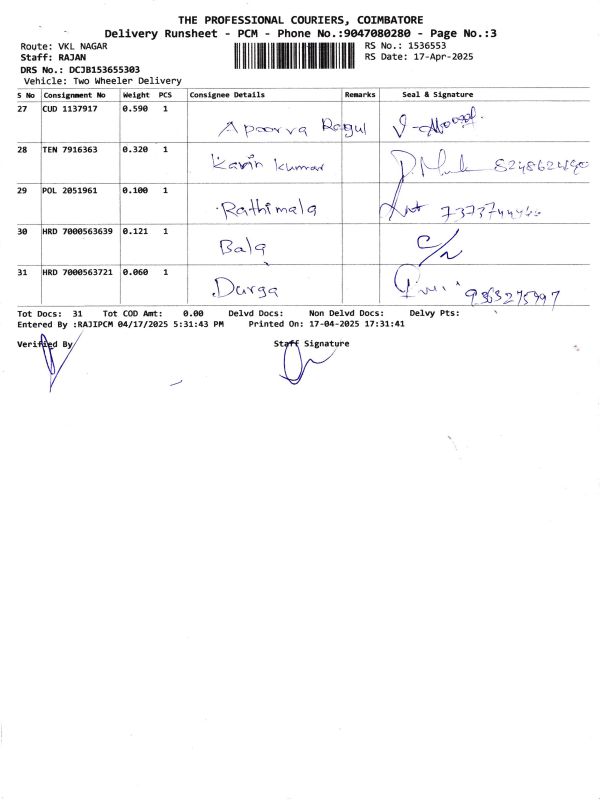 THE PROFESSIONAL COURIERS, COIMBATORE
Delivery Runsheet - PCM - Phone No.:9047080280 - Page No.:3
Route: VKL NAGAR RS No.: 1536553
Staff: RAJAN RS Date: 17-Apr-2025
DRS No.: DCJB153655303
Vehicle: Two Wheeler Delivery
S No Consignment No Weight PCS Consignee Details Remarks Seal & Signature
27 CUD 1137917 0.590 1 Apoorva Ragul
28 TEN 7916363 0.320 1 Kavin Kumar
29 POL 2051961 0.100 1 Rathimala
30 HRD 7000563639 0.121 1 Bala
31 HRD 7000563721 0.060 1 Durga
Tot Docs: 31 Tot COD Amt: 0.00 Delvd Docs: Non Delvd Docs: Delvy Pts:
Entered By :RAJIPCM 04/17/2025 5:31:43 PM Printed On: 17-04-2025 17:31:41
Verified By Staff Signature